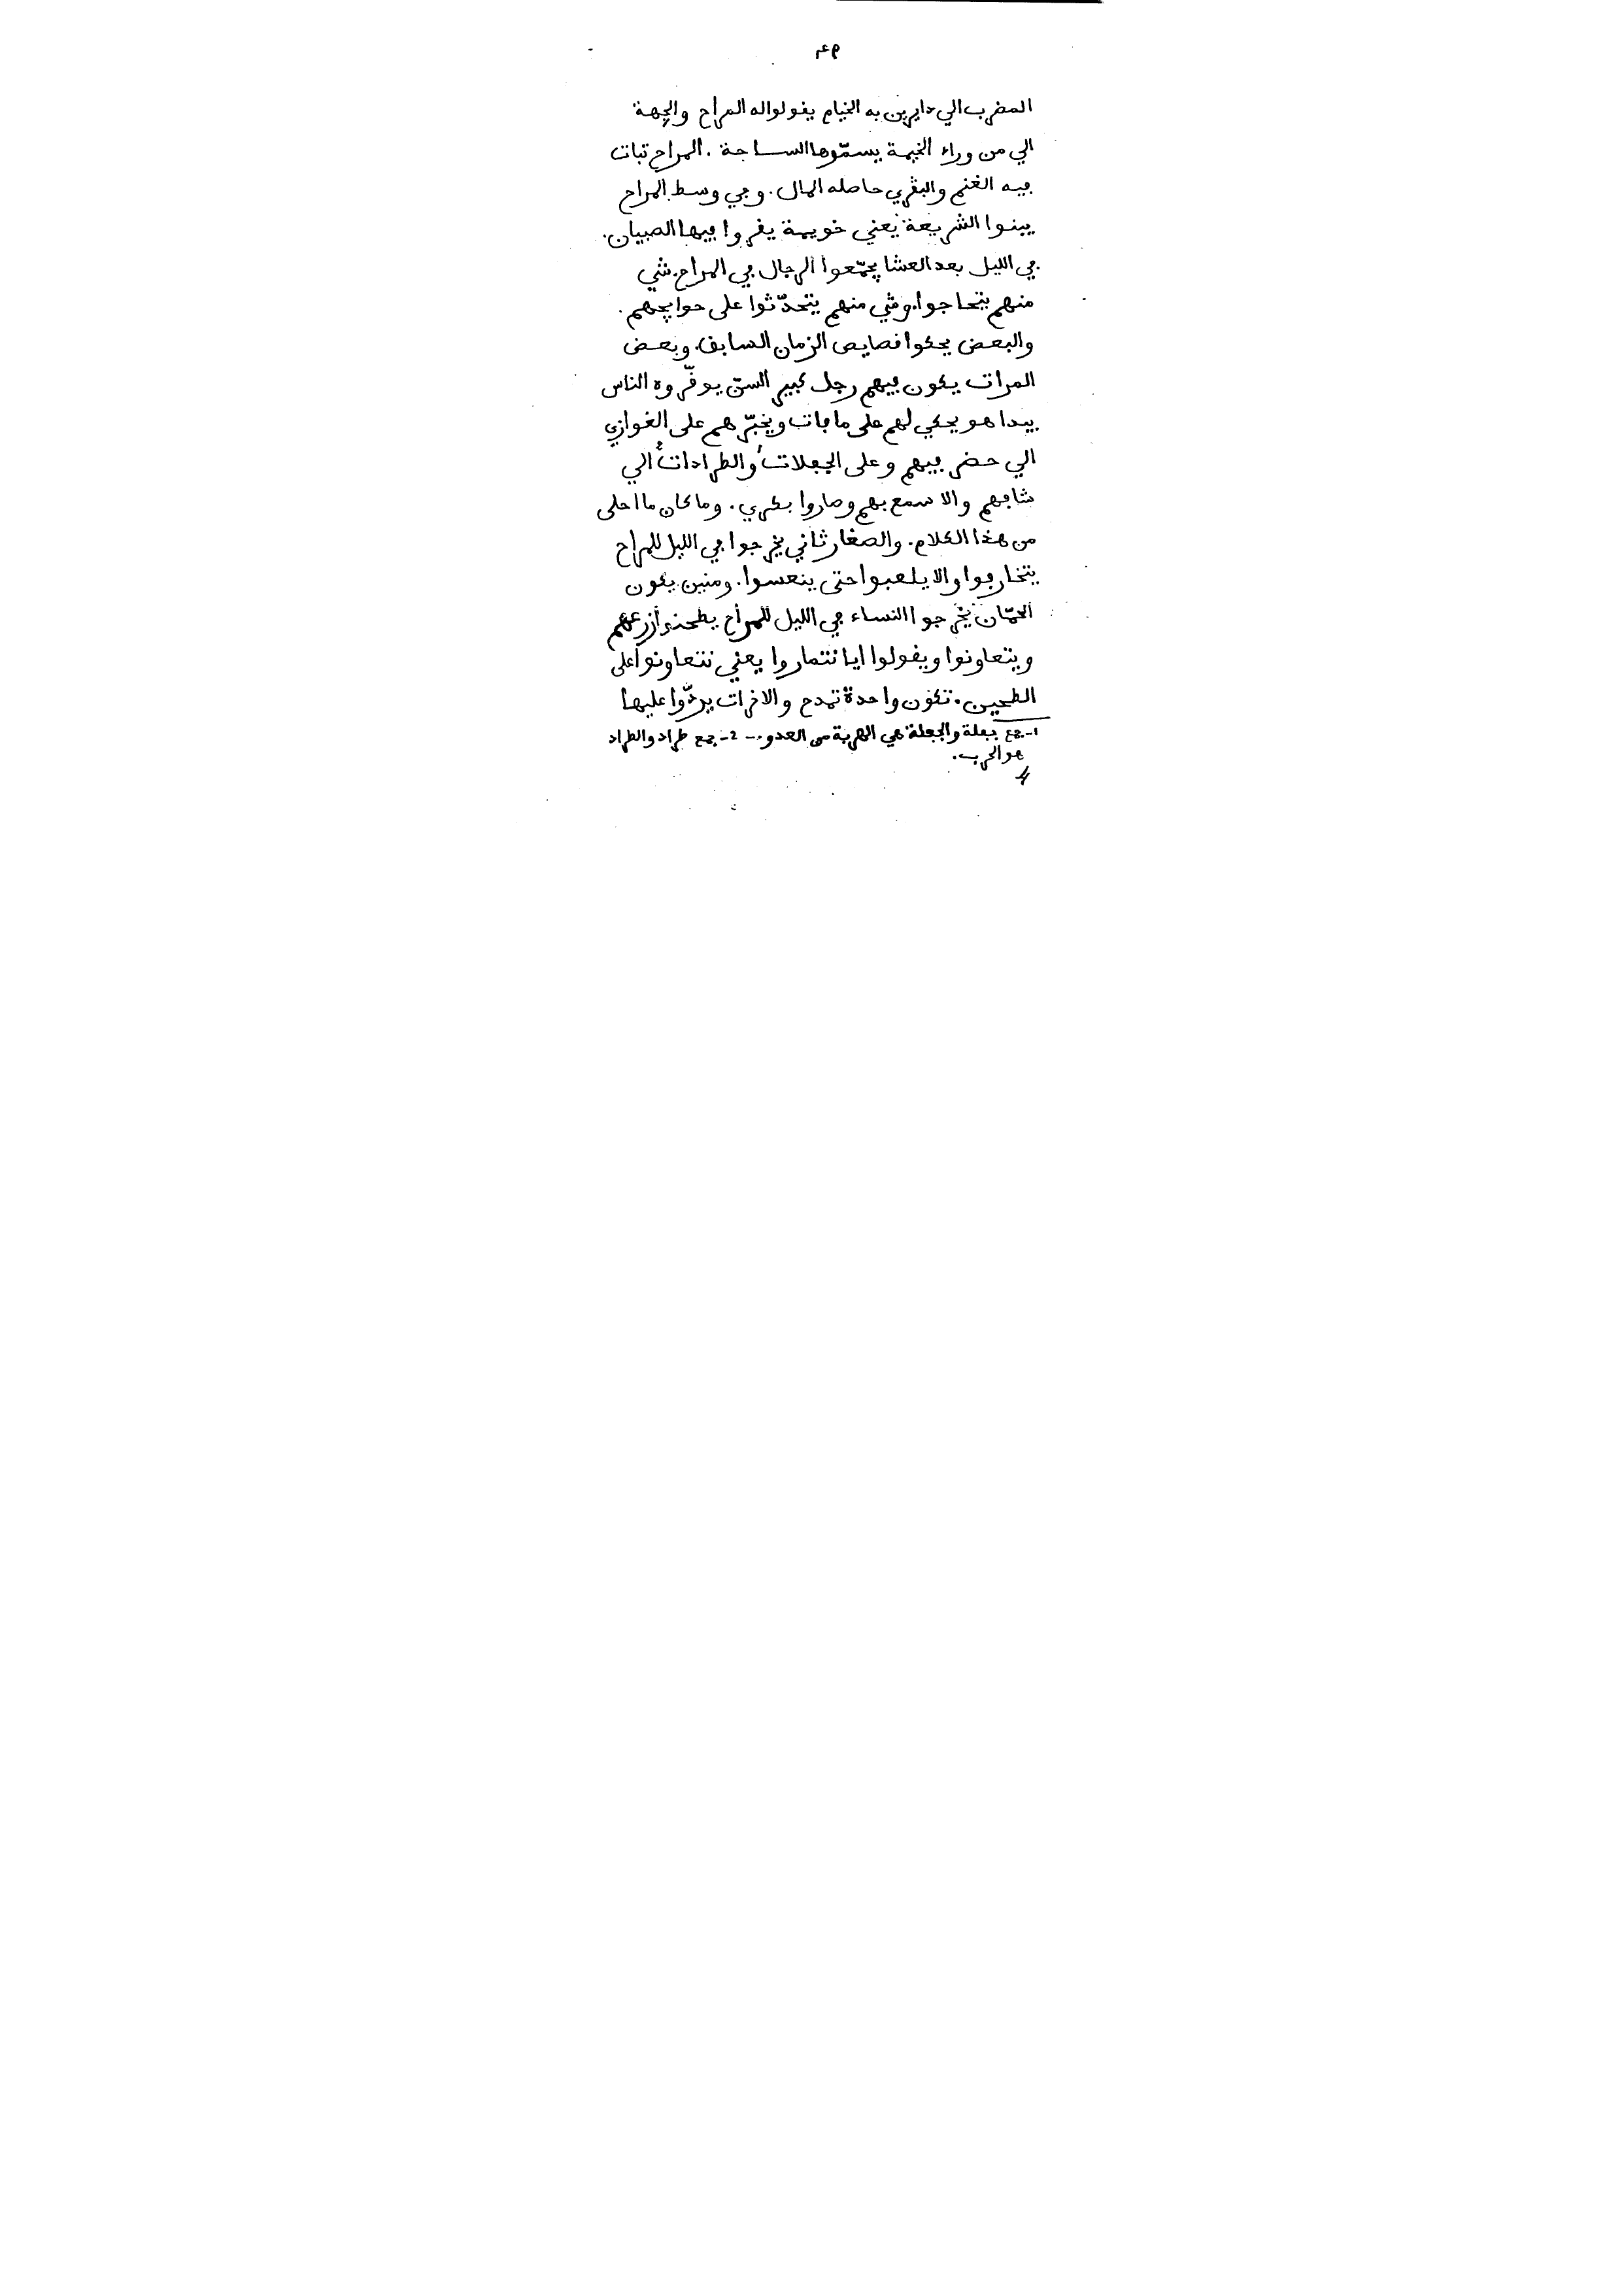 ٤٩
المضرب الي دايرين به الخيام يڧولوا له المراح والجهة
الي من وراء الخيمة يسمّوها الساحة. المراح تبات
ڢيه الغنم والبڧري حاصله المال. وڢي وسط المراح
يبنوا الشريعة يعني خويمة يڧروا ڢيها الصبيان.
ڢي الليل بعد العشا يجمّعوا الرجال ڢي المراح. شي
منهم يتحاجوا. وشي منهم يتحدّثوا على حوايجهم.
والبعض يحكوا ڧصايص الزمان السابڧ. وبعض
المرات يكون ڢيهم رجل كبير السنّ يوڧّروه الناس
يبدا هو يحكي لهم على ما ڢات ويخبّرهم على الغوازي
الي حضر ڢيهم وعلى الجڢلات¹ والطرادات² الي
شاڢهم والا سمع بهم وصاروا بكري. وما كان ما احلى
من هذا الكلام. والصغار ثاني يخرجوا ڢي الليل للمراح
يتخارڢوا والا يلعبوا حتى ينعسوا. ومنين يكون
الحمّان يخرجوا النساء ڢي الليل للمراح يطحنوا زرعهم
ويتعاونوا ويڧولوا ايا نتماروا يعني نتعاونوا على
الطحين. تكون واحدة تمدح والاخرات يردّوا عليها
1- جمع جڢلة والجڢلة هي الهربة من العدو. - 2- جمع طراد والطراد
هو الحرب.